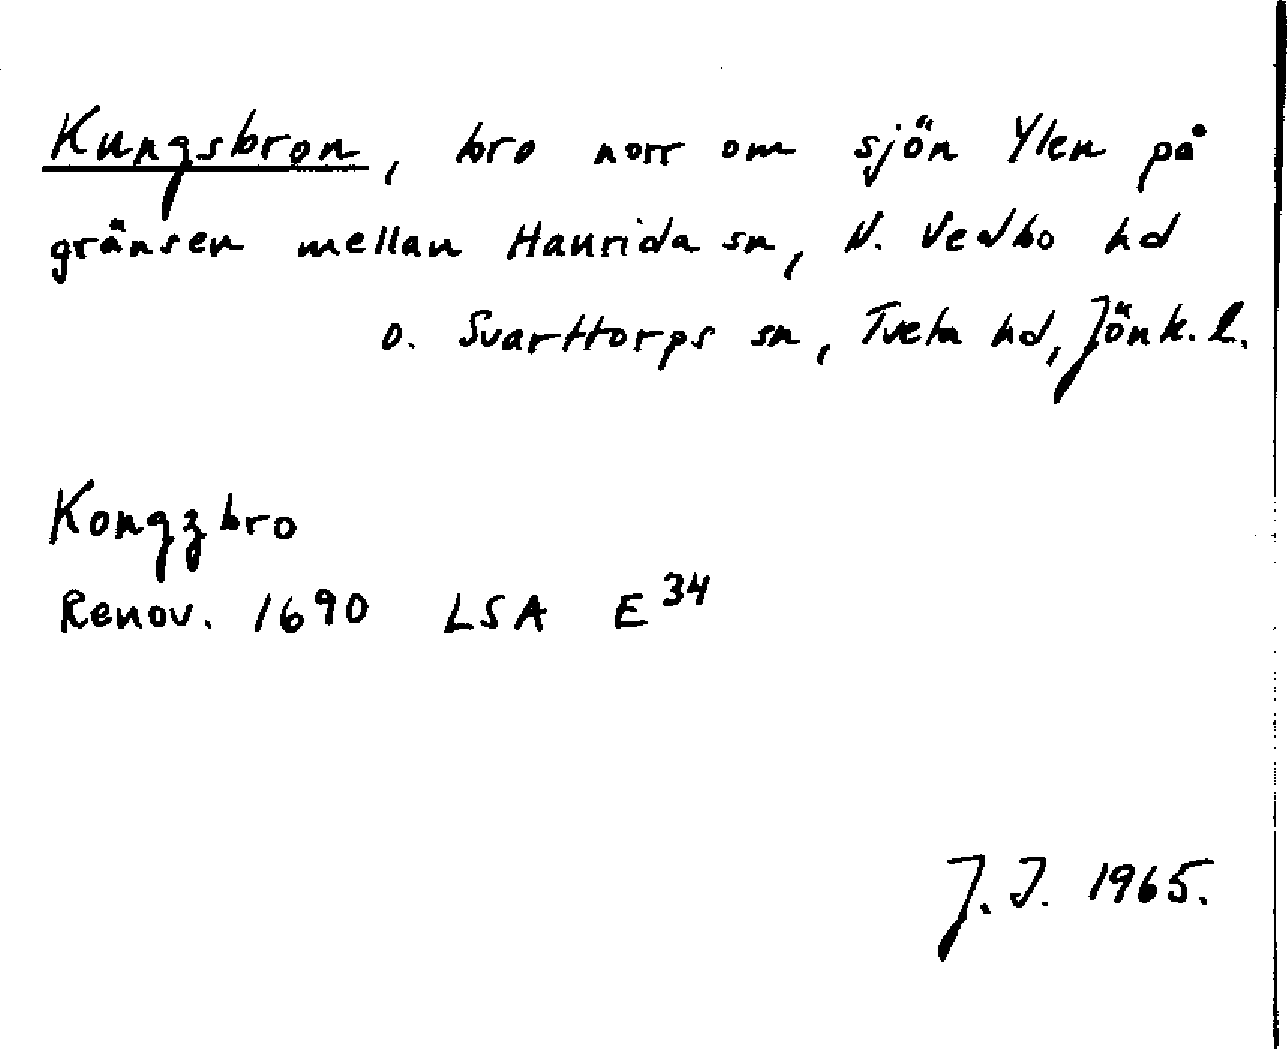 Kungsbron, bro norr om sjön Ylen på
gränsen mellan Haurida sn, N. Vedbo hd
o. Svarttorps sn, Tveta hd, Jönk. l.
Kongzbro
Renov. 1690 LSA E 34
J. I. 1965.